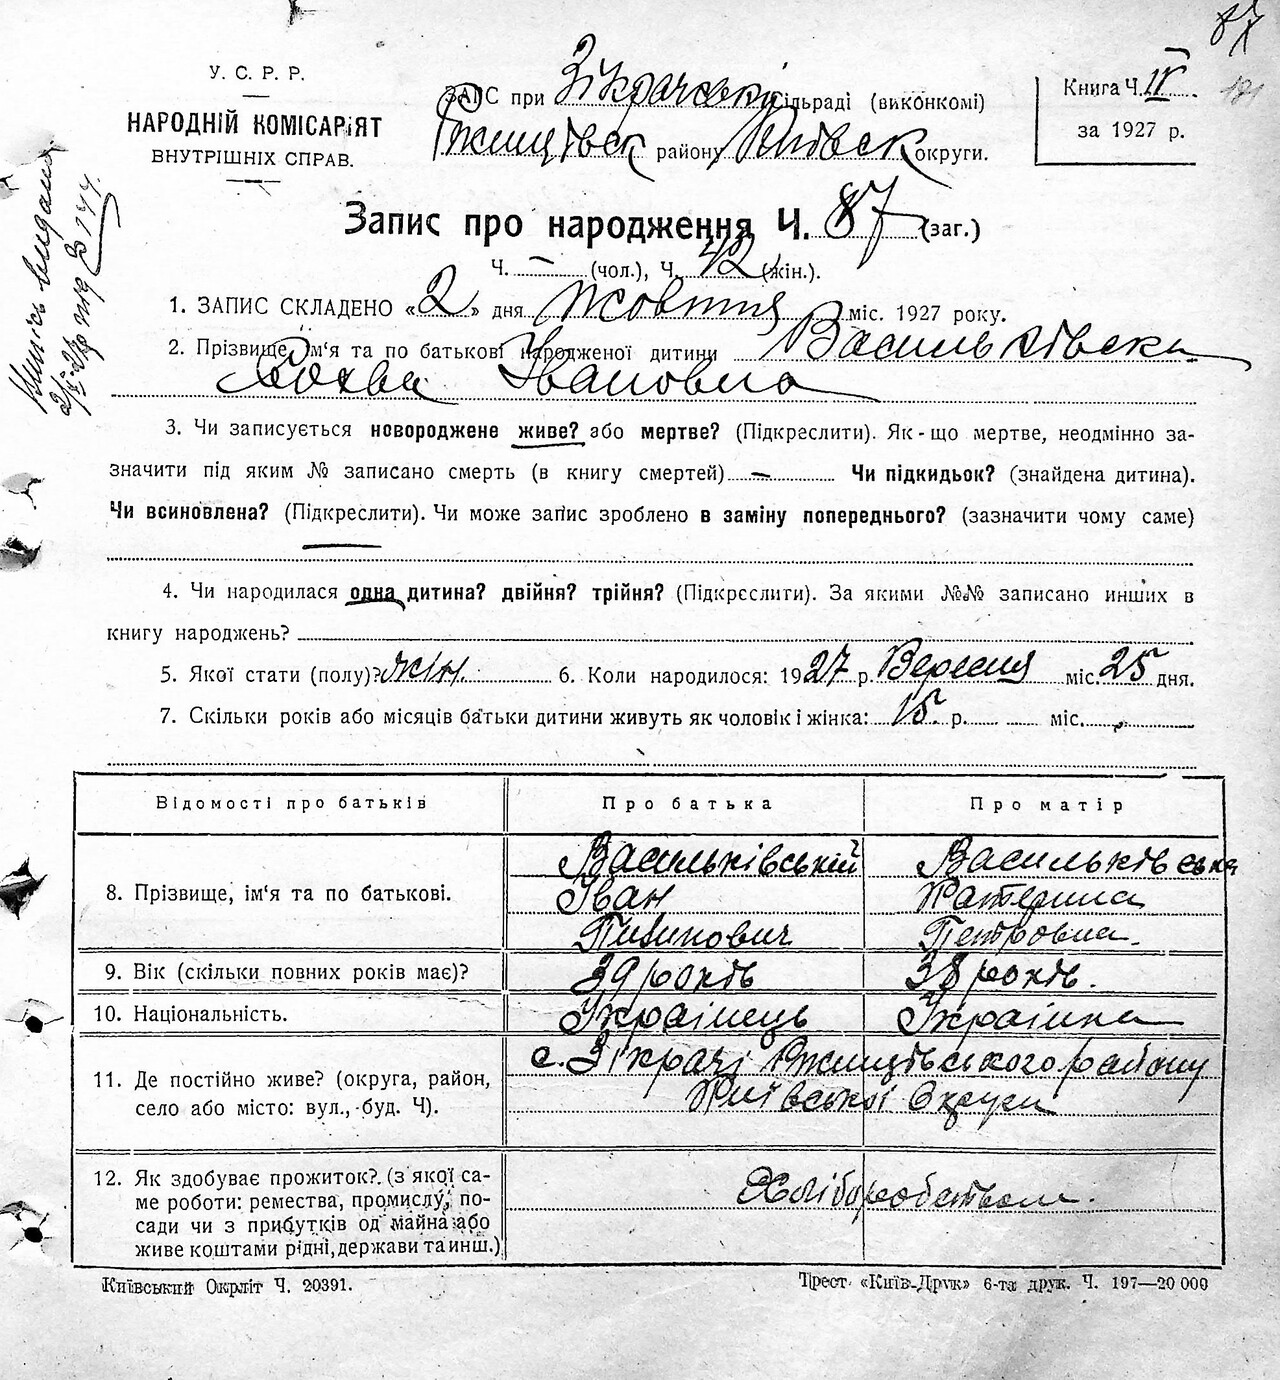 87
181
У. С. Р. Р.
НАРОДНІЙ КОМІСАРІЯТ
ВНУТРІШНІХ СПРАВ.
ЗАПС при Зікрачській сільраді (виконкомі)
Ржищівськ району Київськ округи.
Книга Ч. ІІ
за 1927 р.
Запис про народження Ч. 87 (заг.)
Ч. — (чол.), Ч. 42 (жін.).
1. ЗАПИС СКЛАДЕНО «2» дня Жовтня міс. 1927 року.
2. Прізвище, ім'я та по батькові народженої дитини Васильківська
Івановна
3. Чи записується новороджене живе? або мертве? (Підкреслити). Як-що мертве, неодмінно за-
значити під яким № записано смерть (в книгу смертей) — Чи підкидьок? (знайдена дитина).
Чи всиновлена? (Підкреслити). Чи може запис зроблено в заміну попереднього? (зазначити чому саме)
4. Чи народилася одна дитина? двійня? трійня? (Підкреслити). За якими №№ записано инших в
книгу народжень?
5. Якої стати (полу)? жін. 6. Коли народилося: 1927 р. Вересня міс. 25 дня.
7. Скільки років або місяців батьки дитини живуть як чоловік і жінка: 15 р. міс.
Відомості про батьків Про батька Про матір
8. Прізвище, ім'я та по батькові.
Васильківський Васильківська
Іван Катерина
Пилипович Петровна.
9. Вік (скільки повних років має)? 39 років 38 років.
10. Національність. Українець Українка
11. Де постійно живе? (округа, район,
село або місто: вул., буд. Ч).
с. Зікрачі Ржищівського району
Київської Округи
12. Як здобуває прожиток? (з якої са-
ме роботи: ремества, промислу, по-
сади чи з прибутків од майна або
живе коштами рідні, держави та инш.)
Хліборобством.
Київський Окрліт Ч. 20391.
Трест «Київ-Друк» 6-та друк. Ч. 197—20 000